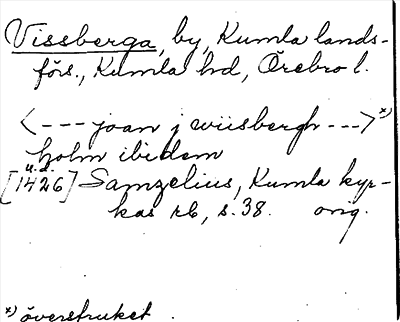 Vissberga, by, Kumla lands-
förs., Kumla hd, Örebro l.
<--- joan j wiisbergh --->x)
holm ibidem
u.d.
[1426] Samzelius, Kumla kyr-
kas rb, s. 38. orig.
x) överstruket.